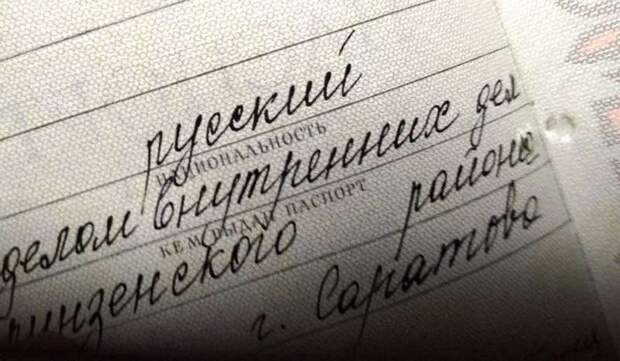 русский
НАЦИОНАЛЬНОСТЬ
делом внутренних дел
КЕМ ВЫДАН ПАСПОРТ
района
г. Саратова